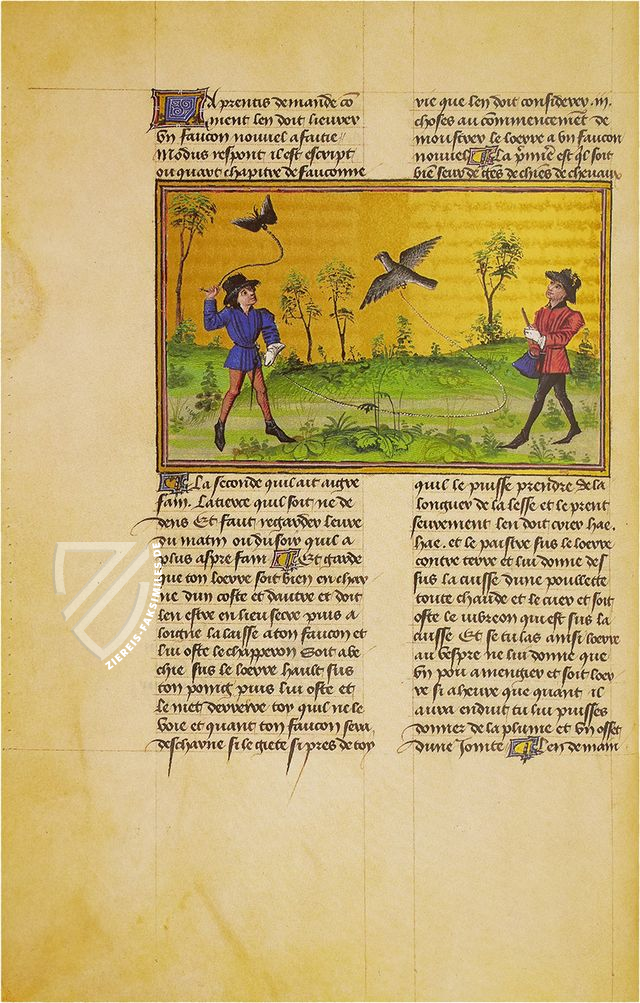 Aprentis demande co
ment len doit lieurer
Un faucon nouuel a faitie
Modus respont il est escript
ou quart chapitre de fauconne
rie que len doit considerer .iii.
choses au commencement de
moustrer le loerre a un faucon
nouuel La p̃miere est qͥl soit
biẽ seur de gẽs de chiẽs de cheuaux
La seconde quil ait aigre
fain. La tierce quil soit ne de
dens Et faut regarder leure
du matin ou du soir quil a
plus aspre fain Et garde
que ton loerre soit bien en char
ne dun coste et dautre et doit
len estre en lieu secre puis a
loigne la laisse a ton faucon et
lui oste le chapperon Soit abe
chie sus le loerre hault sus
ton poing puis lui oste et
le met derriere toy quil ne le
voie et quant ton faucon sera
descharne si le giete si pres de toy
quil le puisse prendre de la
longuer de la lesse et le prent
seurement len doit crier hae.
hae. et le paistre sus le loerre
contre terre et lui donne des
sus la cuisse dune poullette
toute chaude et le cuer et soit
oste le iubreon qui est sus la
cuisse Et se tu las ainsi loerre
au vespre ne lui donne que
un pou a mengier et soit loer
re si a heure que quant il
aura enduit tu lui puisses
donner de la plume et un osset
dune Jointe Len demain
ZIEREIS-FAKSIMILES.DE